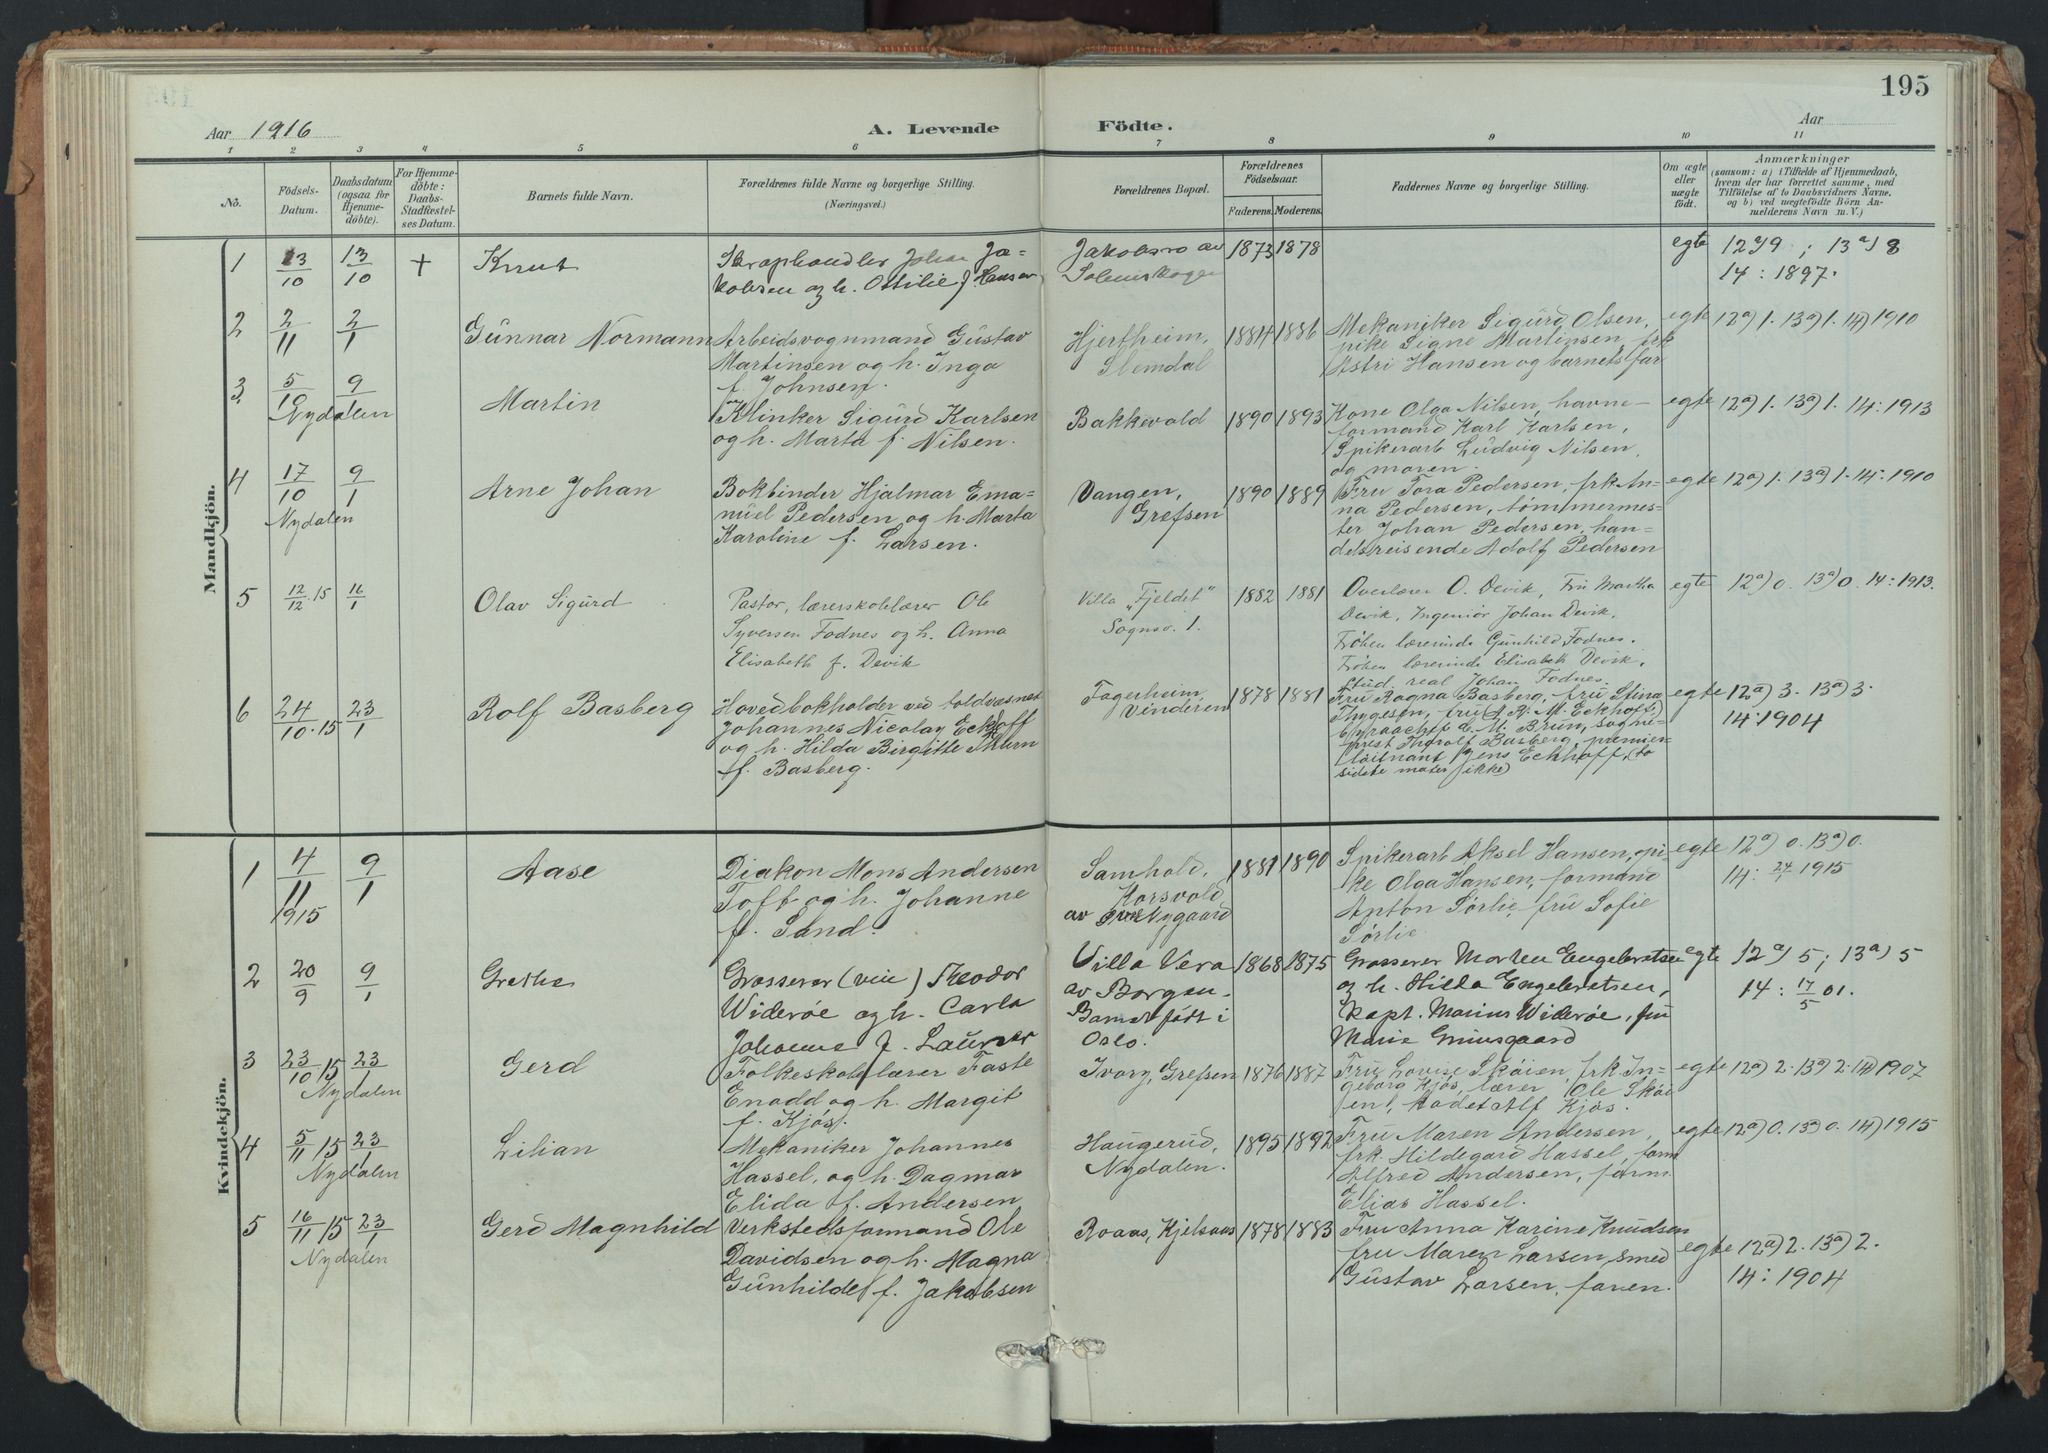 195
Aar 1916 A. Levende Födte. Aar
1 2 3 4 5 6 7 8 9 10 11
No. Födsels-Datum. Daabsdatum (ogsaa for Hjemme-döbte). For Hjemme-döbte: Daabs-Stadfæstel-ses Datum. Barnets fulde Navn. Forældrenes fulde Navne og borgerlige Stilling. (Næringsvei.) Forældrenes Bopæl. Forældrenes Födselsaar. Faderens. Moderens. Faddernes Navne og borgerlige Stilling. Om ægte eller uægte födt. Anmærkninger (saasom: a) i Tilfælde af Hjemmedaab, hvem der har forrettet samme, med Tilföielse af to Daabsvidners Navne. og b) ved uægtefödte Börn An-melderens Navn m. V.)
Mandkjön.
1 13/10 13/10 + Knut Skraphandler Johan Ja-
kobsen og h. Ottilie f. Hansen
Jakobsro av
Solemskogen
1873 1878 egte 12a)9 ; 13a)8
14 : 1897.
2 2/11 2/1 Gunnar Normann Arbeidsvognmand Gustav
Martinsen og h. Inga
f. Johnsen.
Hjertheim,
Slemdal
1884 1886 Mekaniker Sigurd Olsen,
pike Signe Martinsen, frk
Astri Hansen og barnets far
egte 12a) 1. 13a) 1. 14) 1910
3 5/10 9/1 Nydalen Martin Klinker Sigurd Karlsen
og h. Marta f. Nilsen.
Bakkevold 1890 1893 Kone Olga Nilsen, havne-
formand Karl Karlsen,
Spikerarb Ludvig Nilsen,
og moren.
egte 12a) 1. 13a) 1. 14: 1913
4 17/10 9/1 Nydalen Arne Johan Bokbinder Hjalmar Ema-
nuel Pedersen og h. Marta
Karoline f. Larsen.
Vangen,
Grefsen
1890 1889 Fru Tora Pedersen, frk An-
na Pedersen, tømmermes-
ter Johan Pedersen, han-
delsreisende Adolf Pedersen
egte 12a) 1. 13a) 1. 14: 1910
5 12/12 15 16/1 Olav Sigurd Pastor, lærerskolelærer Ole
Syversen Fodnes og h. Anna
Elisabeth f. Devik
Villa „Fjeldet"
Sognsv. 1.
1882 1881 Overlærer O. Devik, Fru Martha
Devik, Ingeniør Johan Devik,
Frøken lærerinde Gunhild Fodnes.
Frøken lærerinde Elisabeth Devik,
Stud. real Johan Fodnes.
egte 12a) 0. 13a) 0. 14: 1913.
6 24/10 15 23/1 Rolf Basberg Hovedbokholder ved toldvæsnet
Johannes Nicolay Eckhoff
og h. Hilda Birgitte Thurn
f. Basberg.
Fagerheim,
Vinderen
1878 1881 Fru Ragna Basberg, fru Stina
Thygesen, fru A. R. M. Eckhoff,
E. M. Brun, sogne-
prest Thorolf Basberg, premier-
løitnant Jens Eckhoff, (to
sidste møter ikke)
egte 12a) 3. 13a) 3.
14: 1904
Kvindekjön.
1 4/11 1915 9/1 Aase Diakon Mons Andersen
Toft og h. Johanne
f. Sand.
Samhold,
Korsvold
av Nygaard
1881 1890 Spikerarb Aksel Hansen, pi-
ke Olga Hansen, formand
Anton Sørlie, fru Sofie
Sørlie
egte 12a) 0. 13a) 0.
14: 1915
2 20/9 9/1 Grethe Grosserer (vin) Theodor
Widerøe og h. Carla
Johanne f. Laurer
Villa Vera
av Borgen.
Barnet født i
Oslo.
1868 1875 Grosserer Morten Engebretsen
og h. Hilda Engebretsen,
Kapt. Marius Widerøe, fru
Marie Grimsgaard
egte 12a) 5; 13a) 5
14: 17/5 01.
3 23/10 15 23/1 Nydalen Gerd Folkeskolelærer Faste
Enodd og h. Margit
f. Kjøs.
Ivory, Grefsen 1876 1887 Fru Lovise Skøien, frk In-
geborg Kjøs, lærer Ole Skøi-
en, kadet Alf Kjøs.
egte 12a) 2. 13a) 2. 14) 1907
4 5/11 15 23/1 Nydalen Lilian Mekaniker Johannes
Hassel, og h. Dagmar
Elida f. Andersen
Haugerud,
Nydalen.
1895 1892 Fru Maren Andersen,
frk. Hildegard Hassel, form
Alfred Andersen, form.
Elias Hassel.
egte 12a) 0. 13a) 0. 14) 1915
5 16/11 15 23/1 Nydalen Gerd Magnhild Verkstedsformand Ole
Davidsen og h. Magna
Gunhilde f. Jakobsen
Roaas, Kjelsaas 1878 1883 Fru Anna Karine Knudsen
fru Maren Larsen, smed
Gustav Larsen, faren.
egte 12a) 2. 13a) 2.
14: 1904